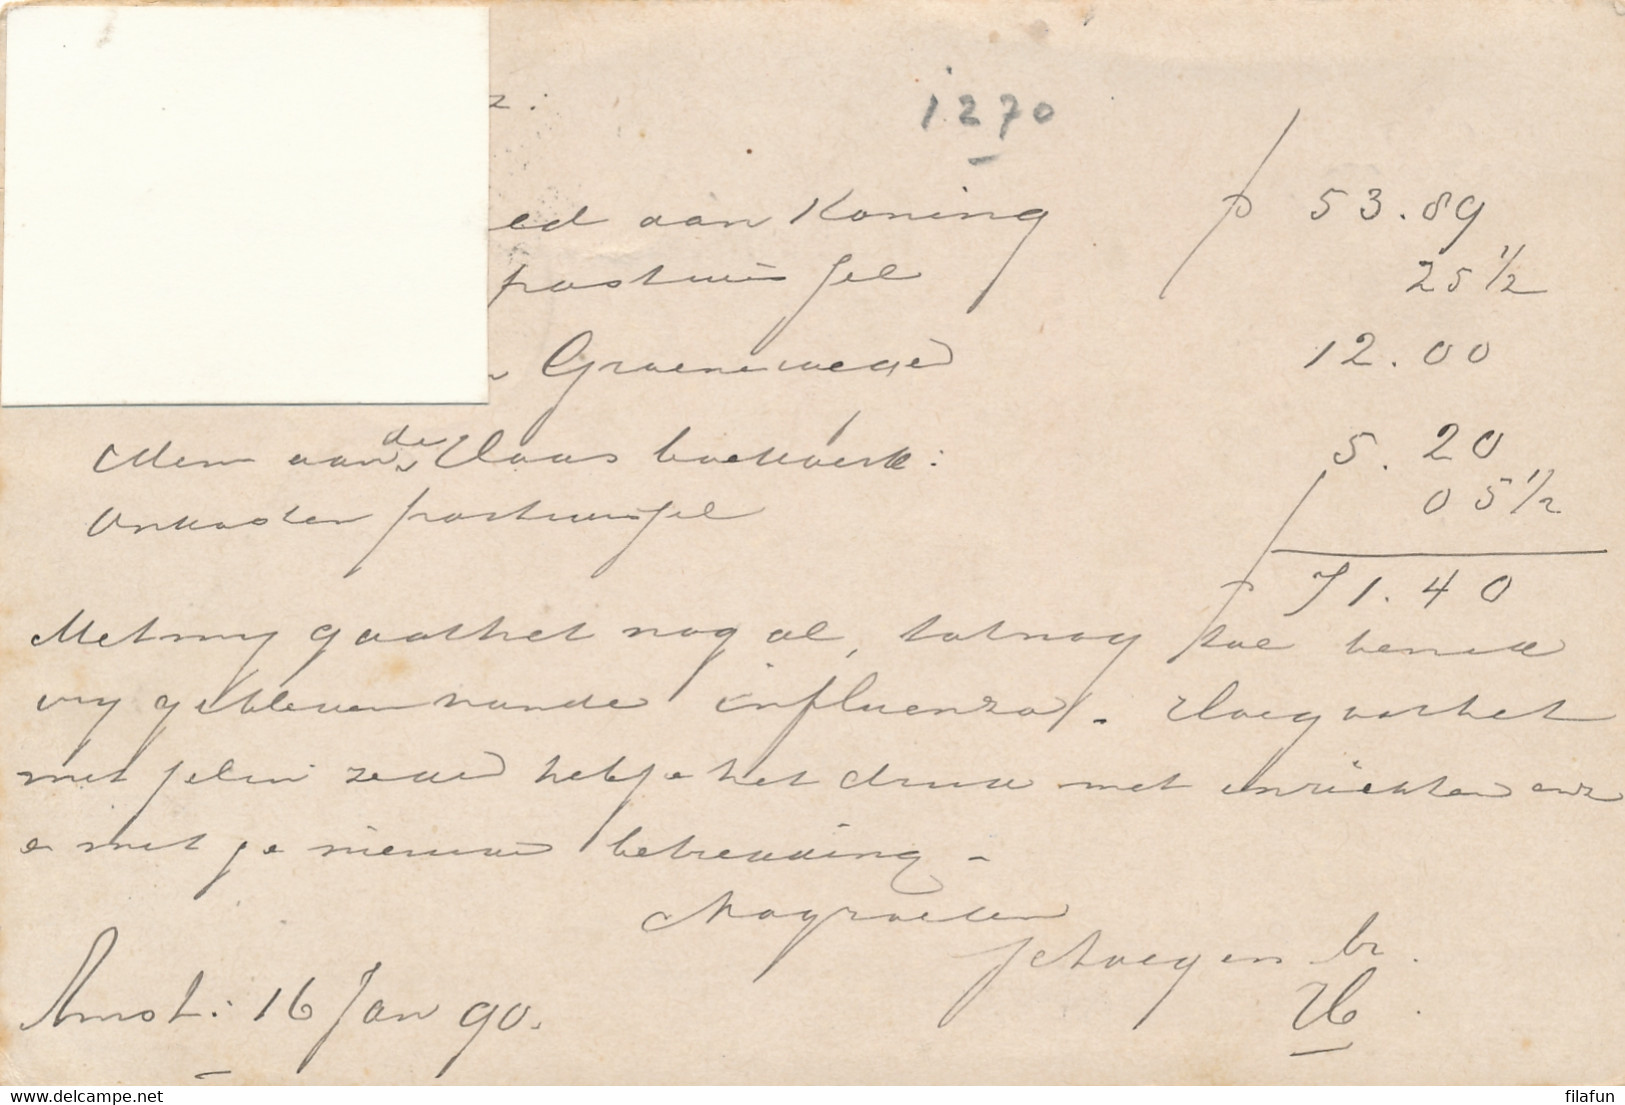 1270
ed aan Koning f 53.89
postwissel 25 1/2
Groenewege 12.00
Idem aan de Haas boekwerk: 5.20
Onkosten postwissel 05 1/2
f 71.40
Met my gaat het nog al, tot nog toe ben ik
vry gebleven van de influenza. Hoe gaat het
met jelui zeker heb je het druk met inrichten enz
en met je nieuwe betrekking -
Na groeten
je Eugen br.
H.
Amst: 16 Jan 90.
www.delcampe.net
filafun